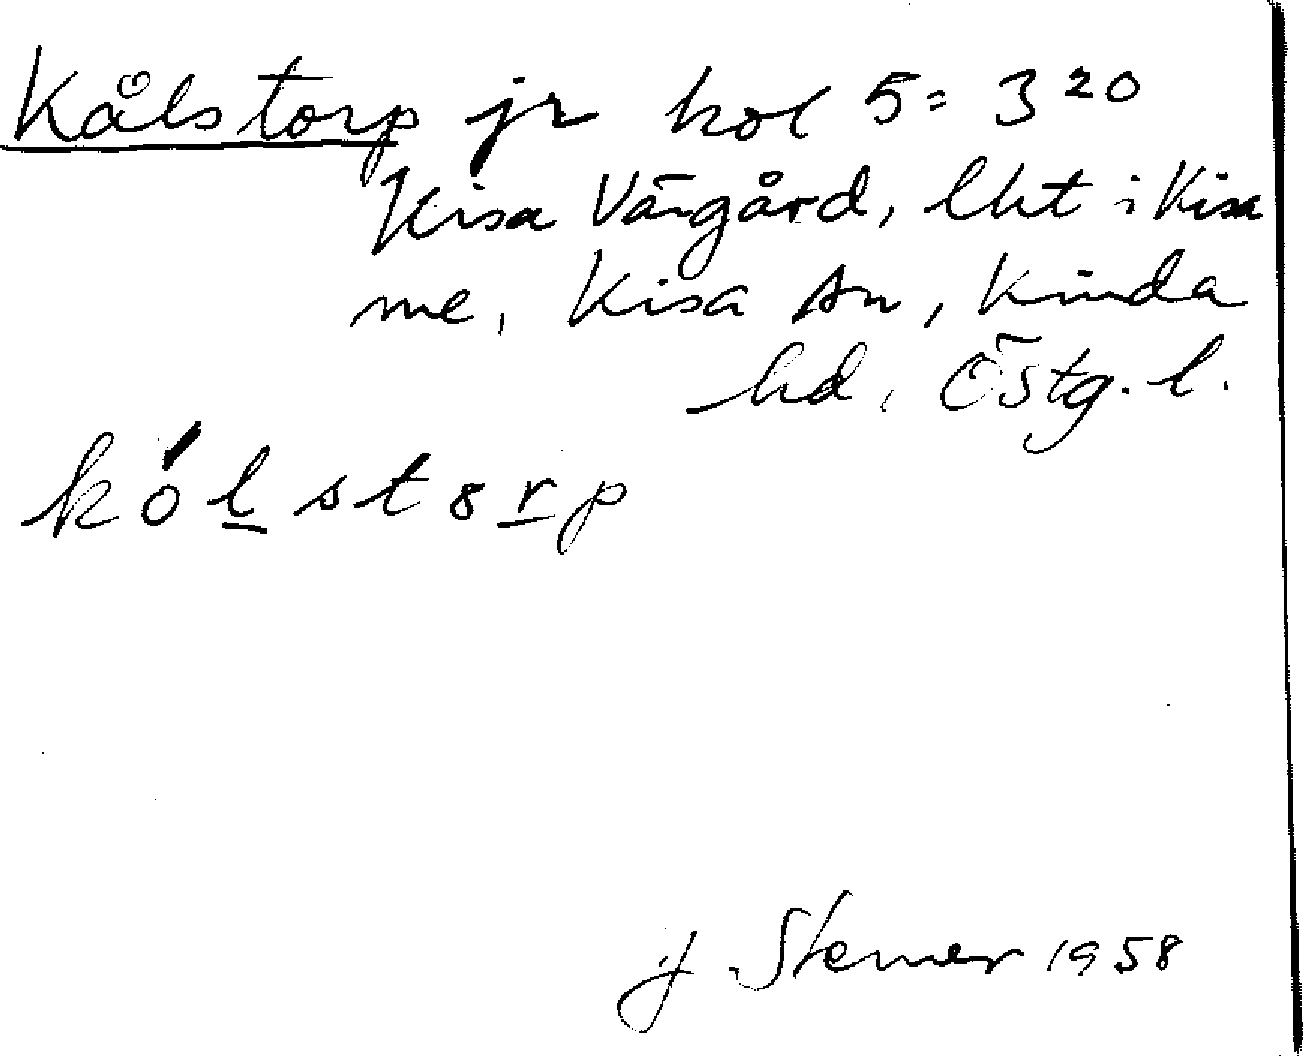 Kålstorp jr kol 5 = 3 20
Kisa Värgård, lht i Kisa
me, Kisa sn, Kinda
hd, Östg. l.
kólstorp
J. Stemer 1958